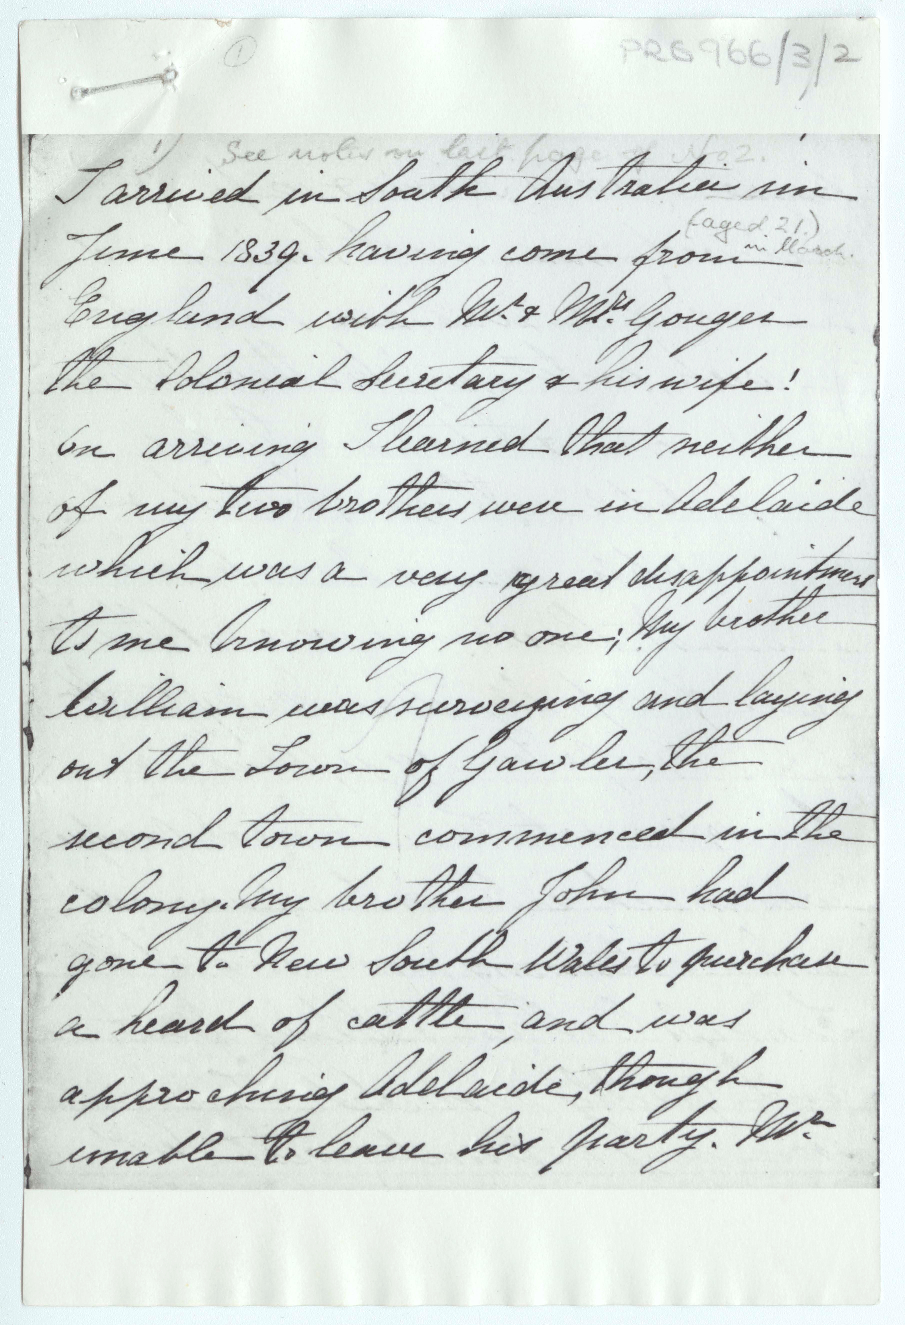 ①
PRG 966/3/2
1) See notes on last page of No 2.
I arrived in South Australia in
(aged 21.)
in March.
June 1839. having come from
England with Mr. & Mrs. Gouger
the Colonial Secretary & his wife!
On arriving I learned that neither
of my two brothers were in Adelaide
which was a very great disappointment
to me knowing no one; My brother
William was surveying and laying
out the Town of Gawler, the
second town commenced in the
colony. My brother John had
gone to New South Wales to purchase
a heard of cattle, and was
approching Adelaide, though
unable to leave his party. Mr.